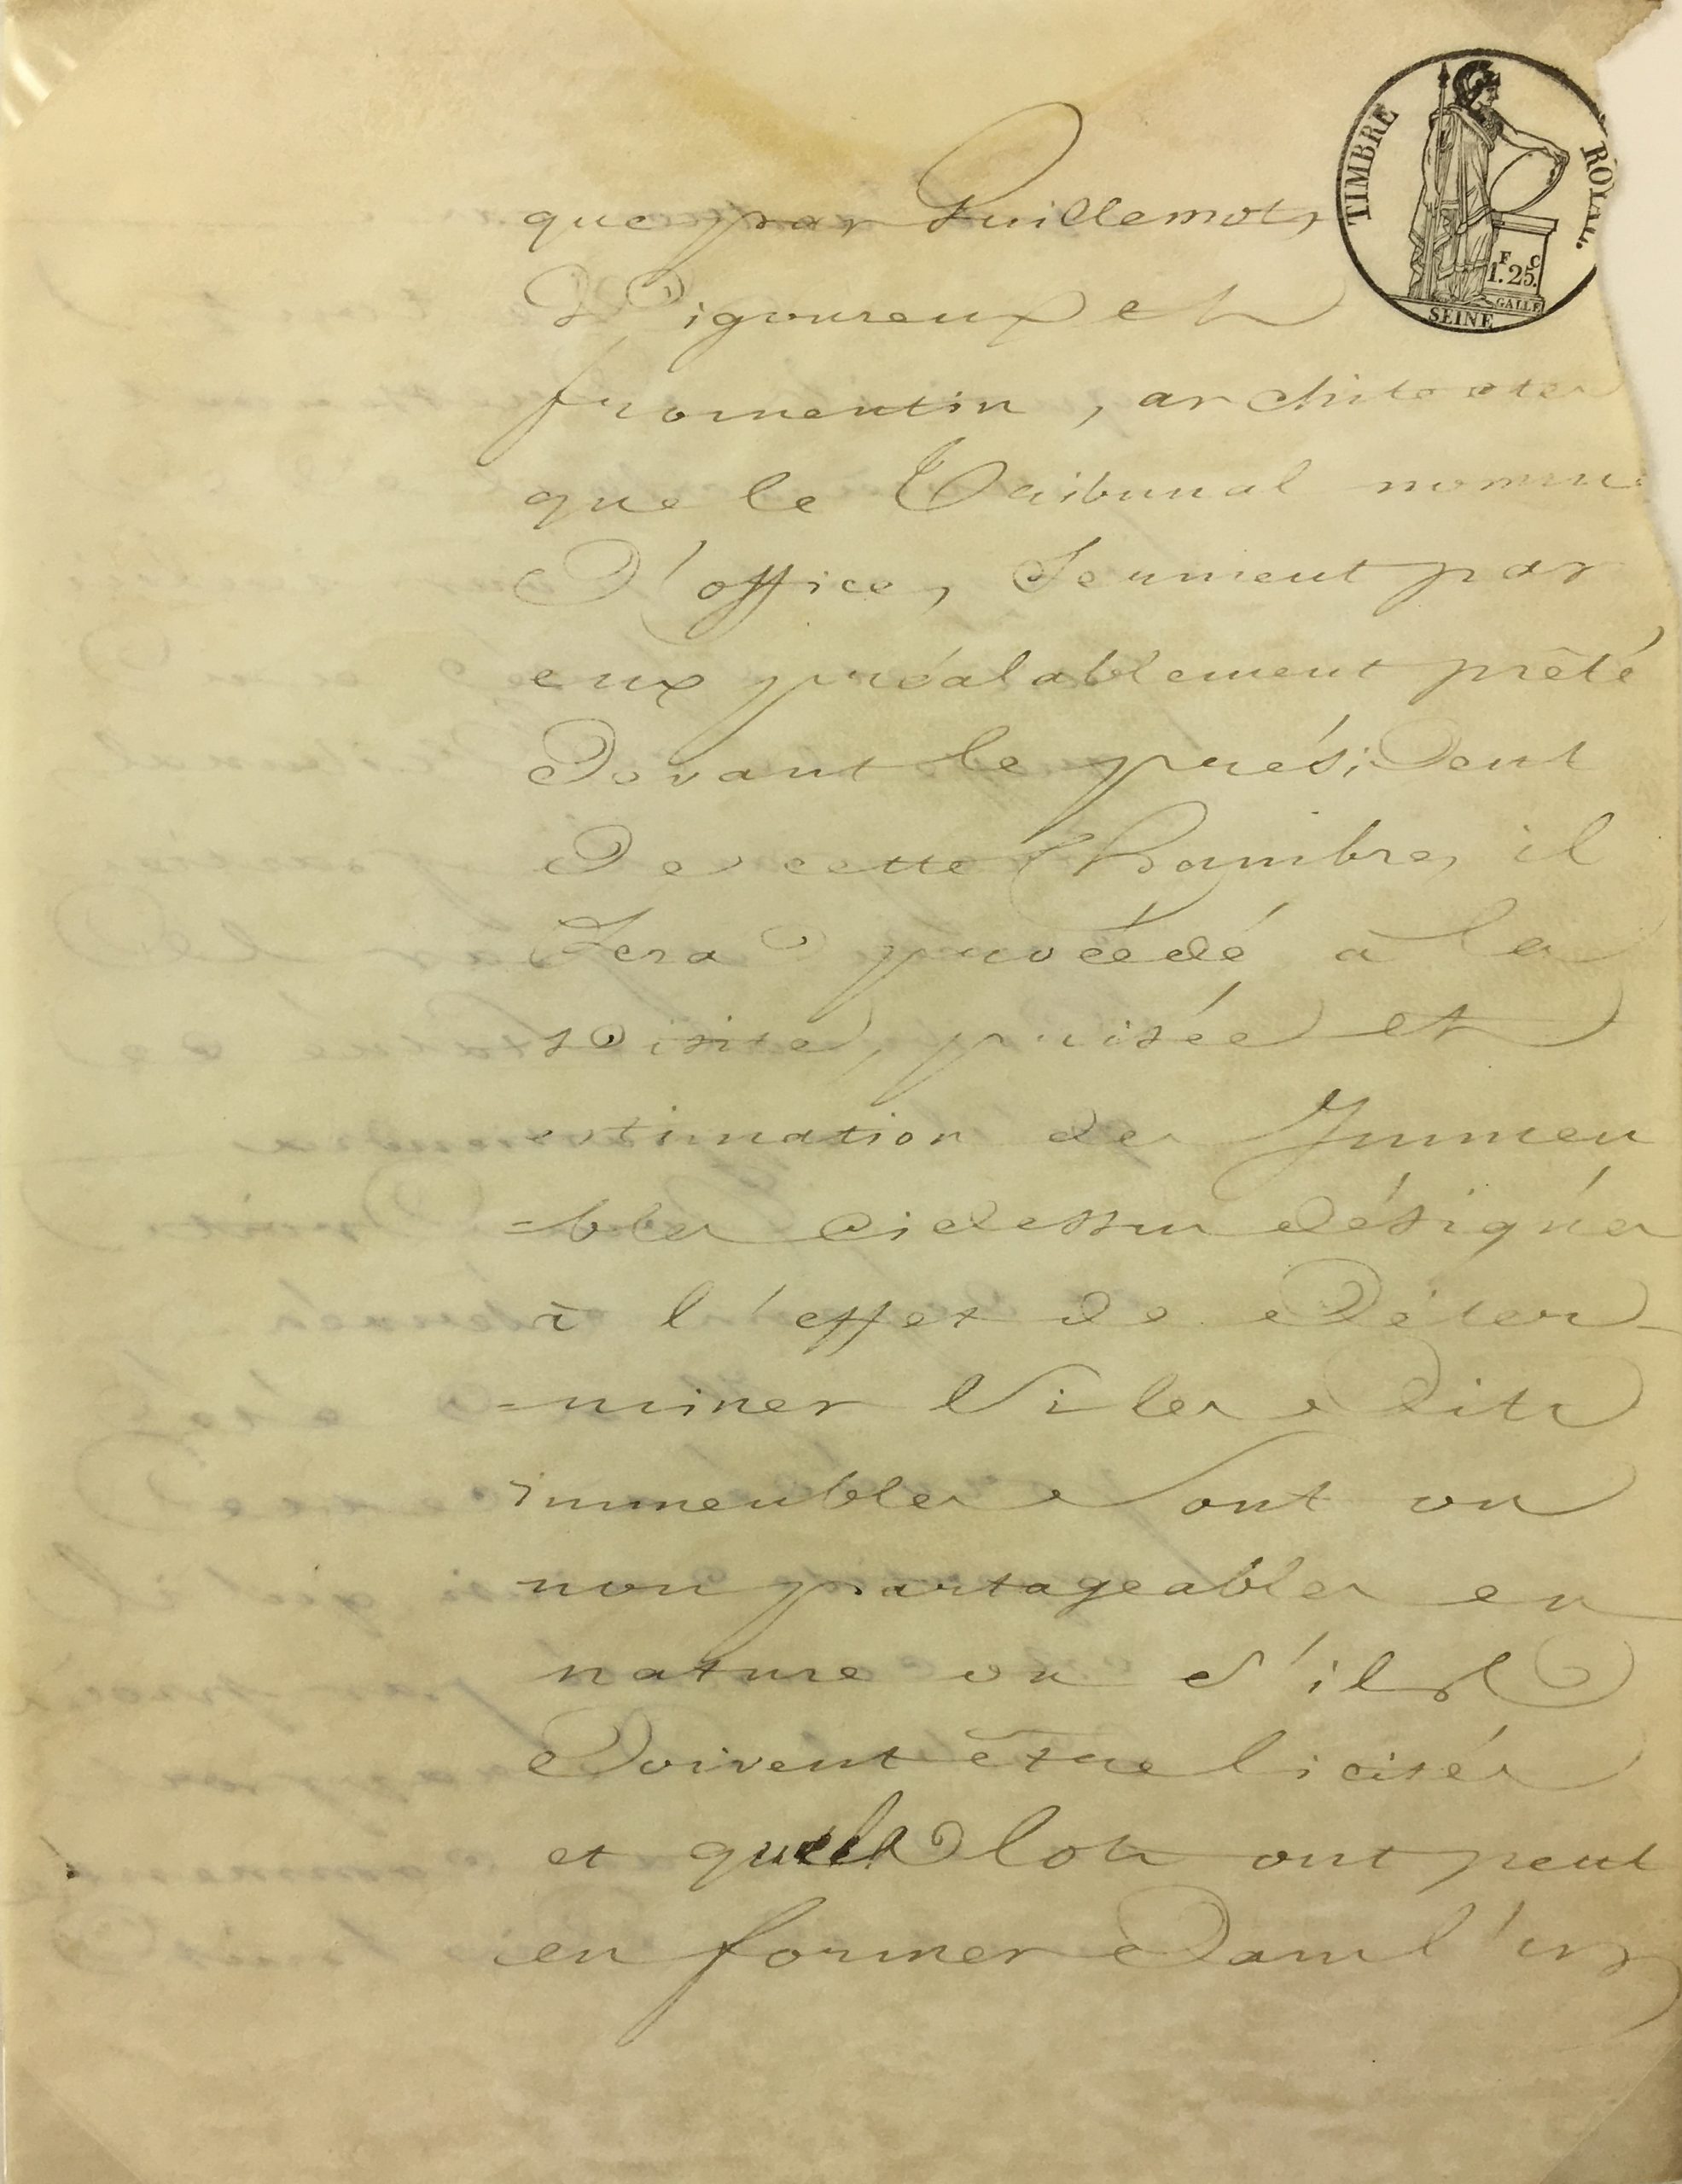 TIMBRE ROYAL.
1. F 25. C
GALLE
SEINE
que par Guillemot,
Vigoureux et
fromentin, architectes
que le Tribunal nomme
D'office, Serment par
eux préalablement prêté
Devant le présiDent
De cette Chambre, il
Sera procédé à la
visite, prisée et
estimation des Immeu
=bles ci dessus désignés
à l'effet de Déter-
=miner Si les dits
immeubles Sont ou
non partageables en
nature ou S'ils
Doivent être licités
et quels lots ont peut
en former Dans l'un